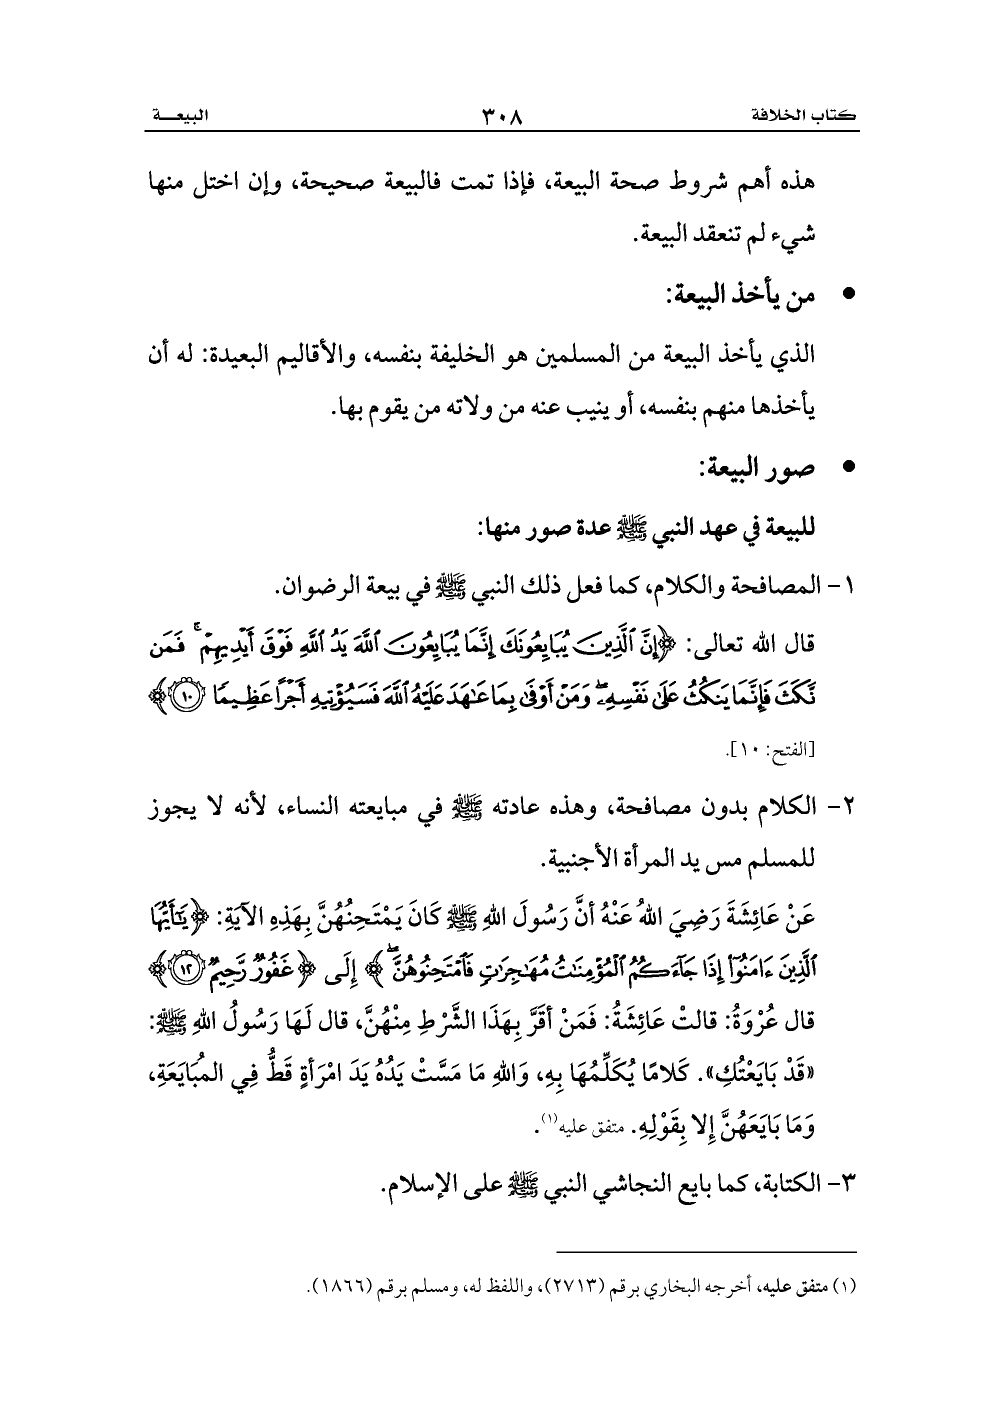 كتاب الخلافة ٣٠٨ البيعـــة
هذه أهم شروط صحة البيعة، فإذا تمت فالبيعة صحيحة، وإن اختل منها
شيء لم تنعقد البيعة.
● من يأخذ البيعة:
الذي يأخذ البيعة من المسلمين هو الخليفة بنفسه، والأقاليم البعيدة: له أن
يأخذها منهم بنفسه، أو ينيب عنه من ولاته من يقوم بها.
● صور البيعة:
للبيعة في عهد النبي ﷺ عدة صور منها:
١- المصافحة والكلام، كما فعل ذلك النبي ﷺ في بيعة الرضوان.
قال الله تعالى: ﴿إِنَّ ٱلَّذِينَ يُبَايِعُونَكَ إِنَّمَا يُبَايِعُونَ ٱللَّهَ يَدُ ٱللَّهِ فَوْقَ أَيْدِيهِمْ ۚ فَمَن
نَّكَثَ فَإِنَّمَا يَنكُثُ عَلَىٰ نَفْسِهِۦ ۖ وَمَنْ أَوْفَىٰ بِمَا عَٰهَدَ عَلَيْهُ ٱللَّهَ فَسَيُؤْتِيهِ أَجْرًا عَظِيمًا ١٠﴾
[الفتح: ١٠].
٢- الكلام بدون مصافحة، وهذه عادته ﷺ في مبايعته النساء، لأنه لا يجوز
للمسلم مس يد المرأة الأجنبية.
عَنْ عَائِشَةَ رَضِيَ اللهُ عَنْهُ أنَّ رَسُولَ اللهِ ﷺ كَانَ يَمْتَحِنُهُنَّ بِهَذِهِ الآيَةِ: ﴿يَٰٓأَيُّهَا
ٱلَّذِينَ ءَامَنُوٓا۟ إِذَا جَآءَكُمُ ٱلْمُؤْمِنَٰتُ مُهَٰجِرَٰتٍ فَٱمْتَحِنُوهُنَّ ۖ﴾ إِلَى ﴿غَفُورٌ رَّحِيمٌ ١٢﴾
قال عُرْوَةُ: قالتْ عَائِشَةُ: فَمَنْ أقَرَّ بِهَذَا الشَّرْطِ مِنْهُنَّ، قال لَهَا رَسُولُ اللهِ ﷺ:
«قَدْ بَايَعْتُكِ». كَلامًا يُكَلِّمُهَا بِهِ، وَاللهِ مَا مَسَّتْ يَدُهُ يَدَ امْرَأةٍ قَطُّ فِي المُبَايَعَةِ،
وَمَا بَايَعَهُنَّ إِلا بِقَوْلِهِ. متفق عليه(١).
٣- الكتابة، كما بايع النجاشي النبي ﷺ على الإسلام.
(١) متفق عليه، أخرجه البخاري برقم (٢٧١٣)، واللفظ له، ومسلم برقم (١٨٦٦).